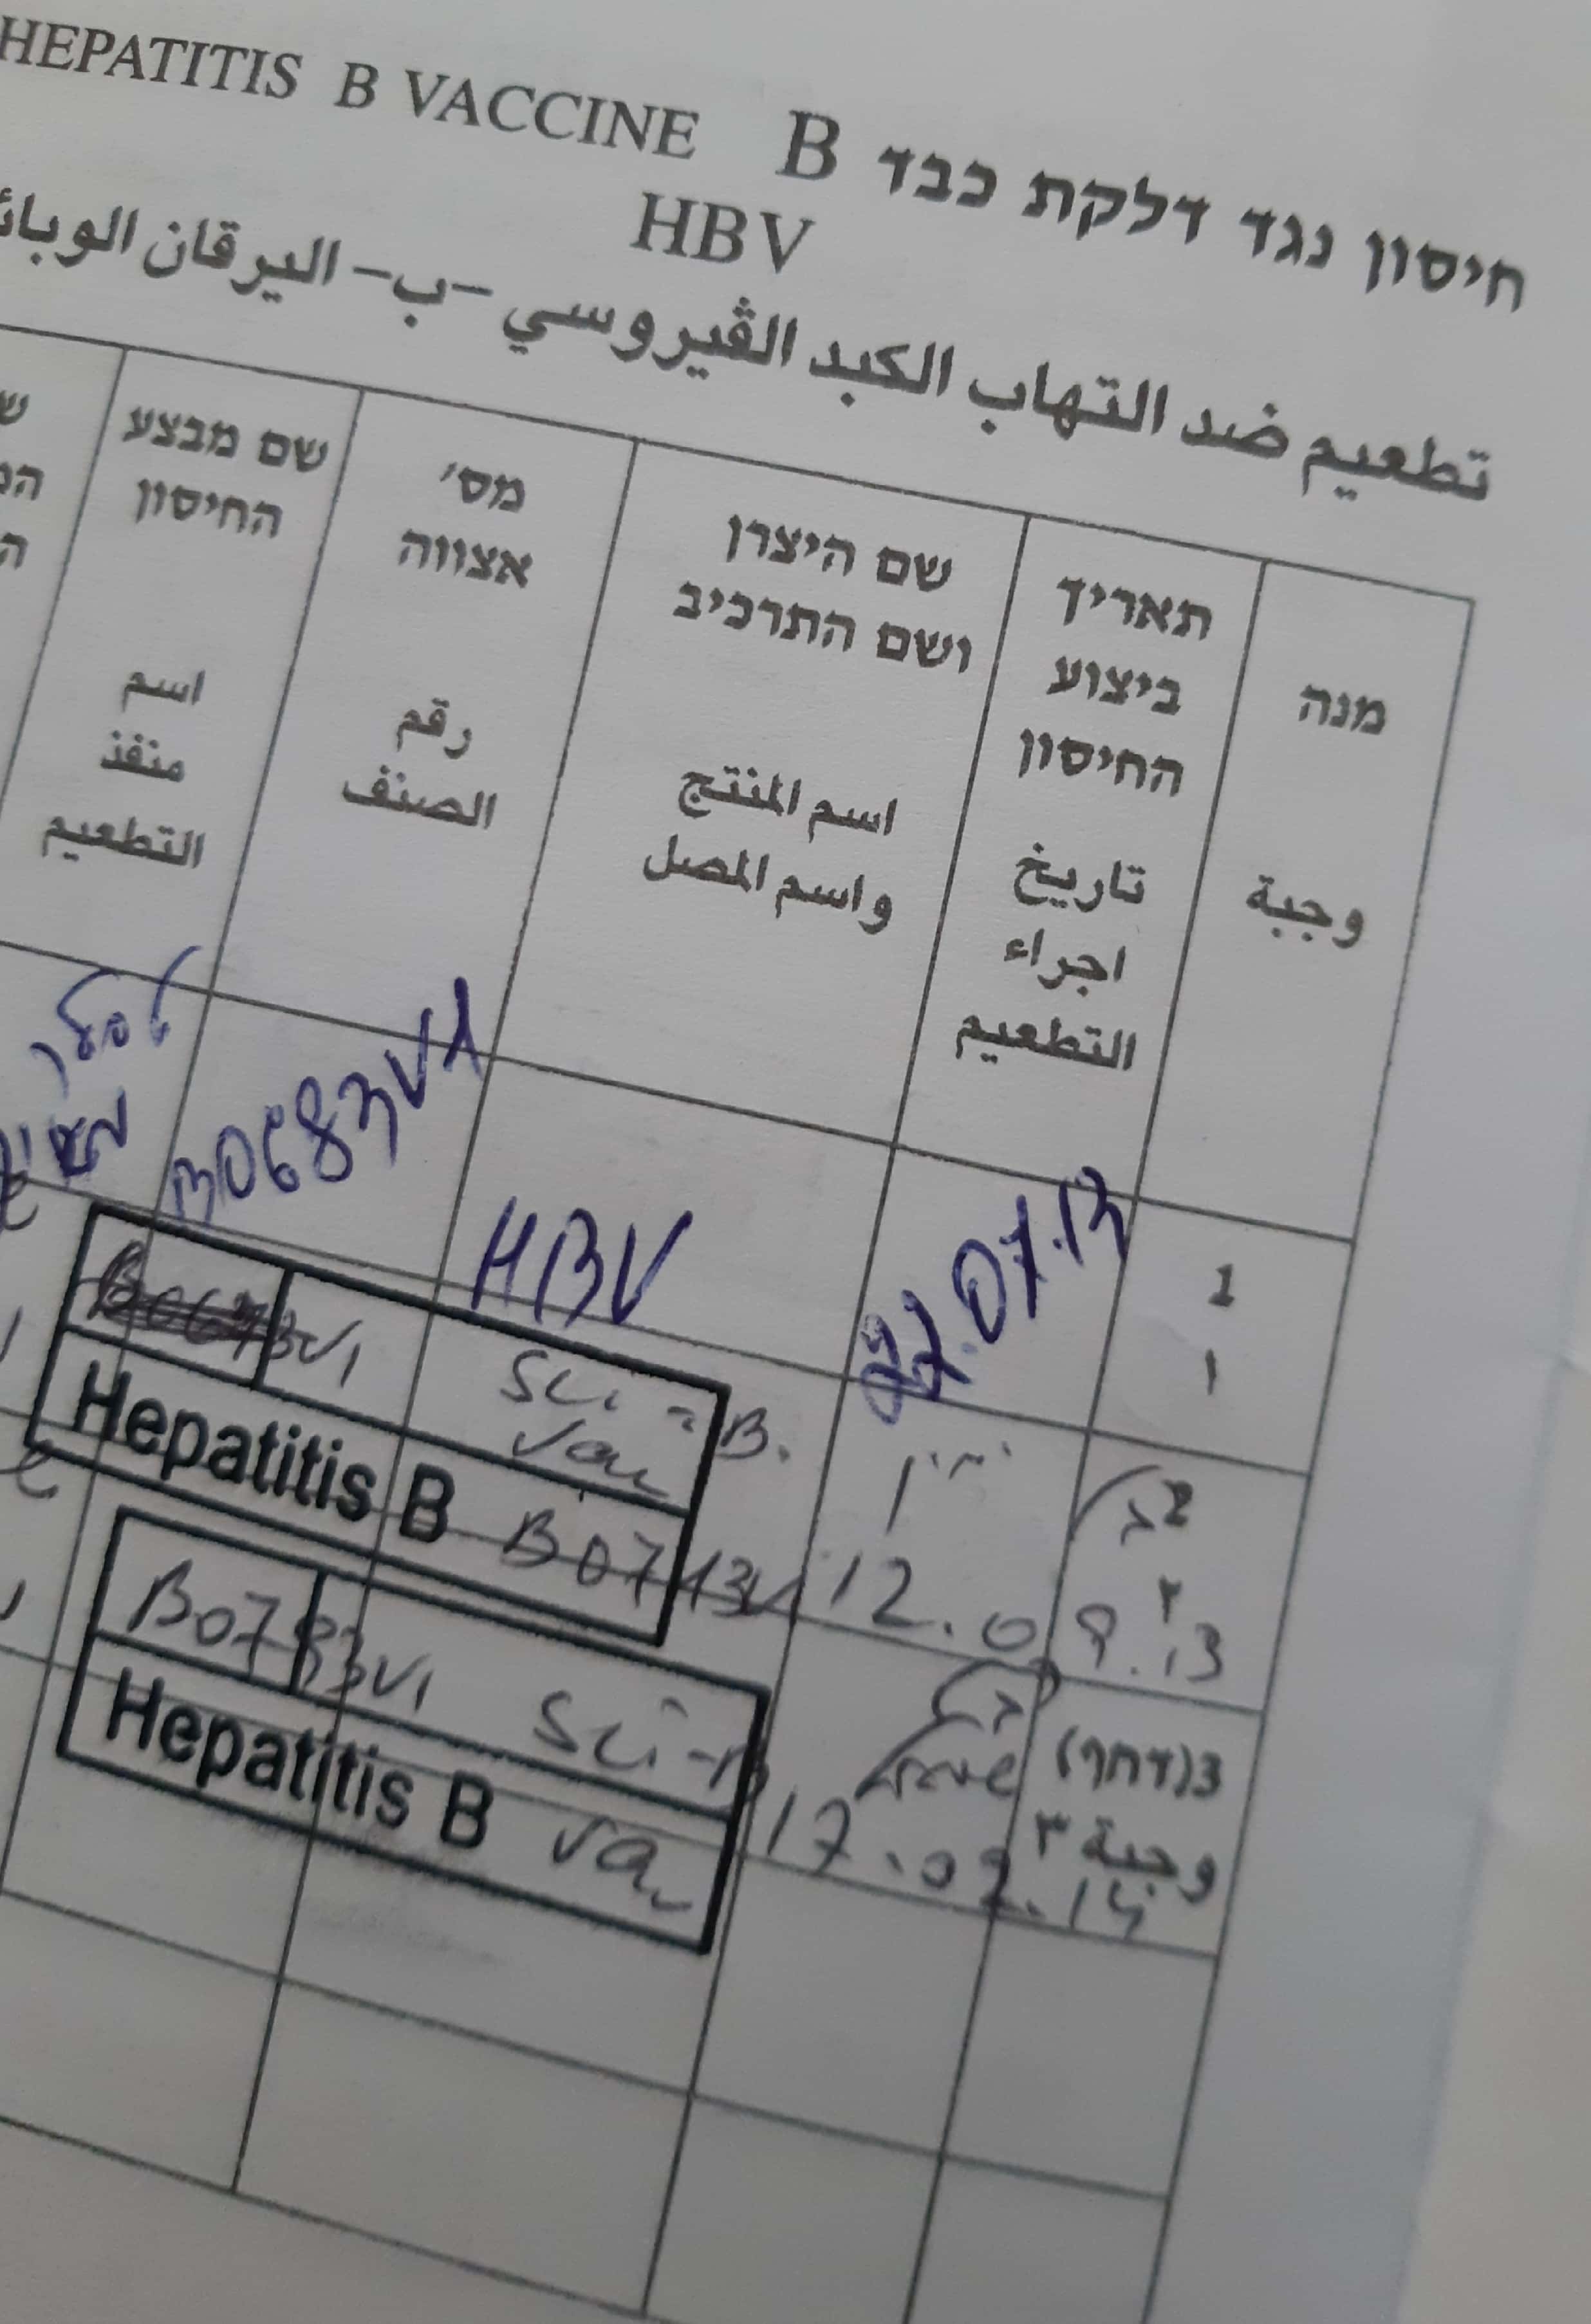 HEPATITIS B VACCINE
חיסון נגד דלקת כבד B
HBV
تطعيم ضد التهاب الكبد الڤيروسي -ب- اليرقان الوبائ
מנה
وجبة
תאריך
ביצוע
החיסון
تاريخ
اجراء
التطعيم
שם היצרן
ושם התרכיב
اسم المنتج
واسم المصل
מס׳
אצווה
رقم
الصنف
שם מבצע
החיסון
اسم
منفذ
التطعيم
1
١
22.07.13
HBV
B0683VA
2
٢
12.09.13
Sci-B.
Vac
Hepatitis B
3(דחף)
وجبة ٣
17.02.14
Sci-B
Vac
B0783V1
Hepatitis B